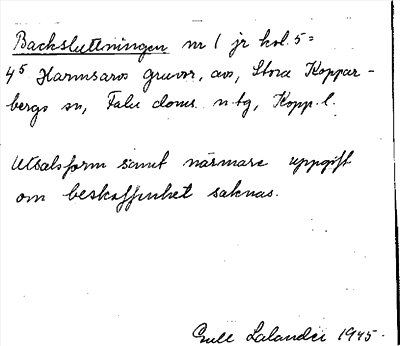 Backsluttningen nr 1 jr kol. 5 =
4⁵ Harmsarvs gruvor, avs, Stora Koppar-
bergs sn, Falu doms. n. tg, Kopp. l.
Uttalsform samt närmare uppgift
om beskaffenhet saknas.
Lalander 1945.